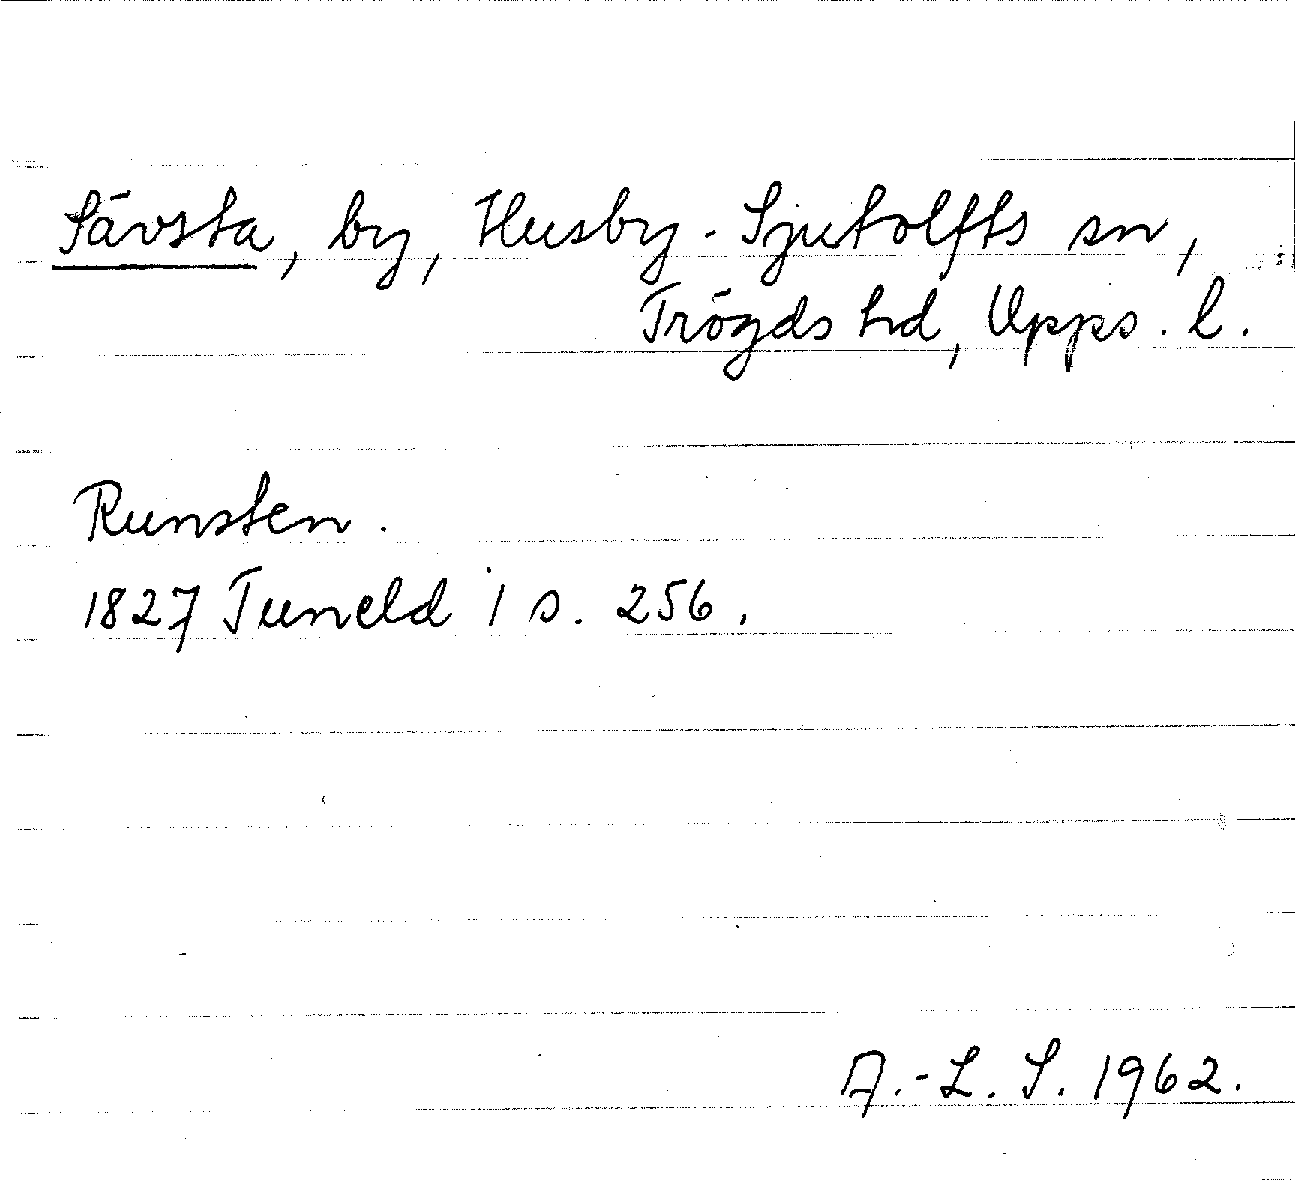 Sävsta, by, Husby-Sjutolfts sn,
Trögds hd, Upps. l.
Runsten.
1827 Tuneld 1 s. 256.
A.-L. S. 1962.